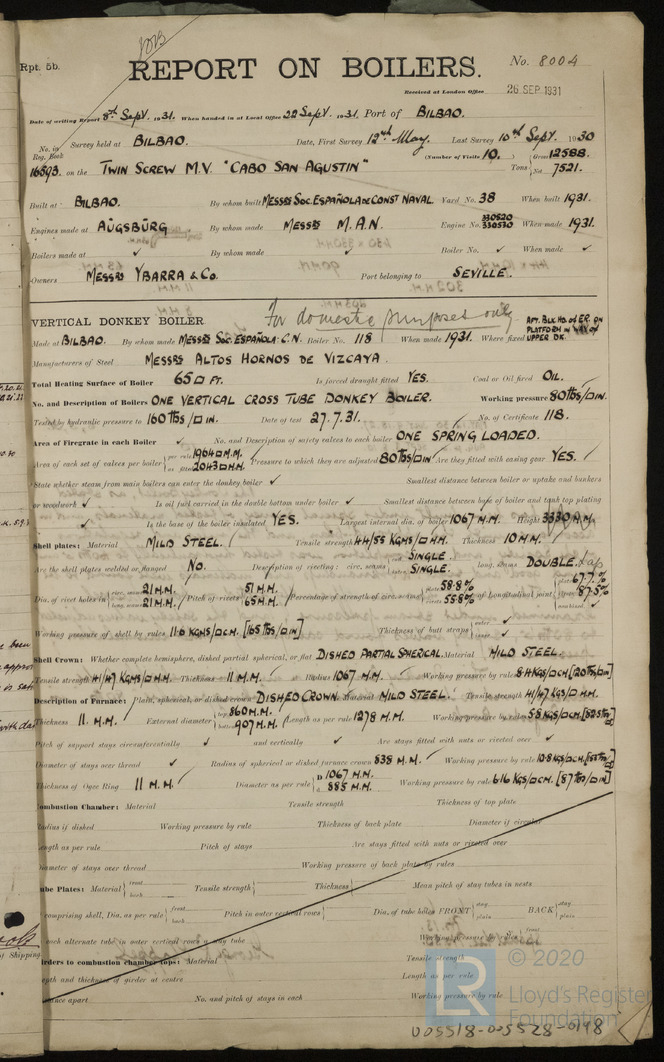 Rpt. 5b.
REPORT ON BOILERS.
No. 8004
Received at London Office 26 SEP. 1931
Date of writing Report 8th Sept. 1931. When handed in at Local Office 22 Sept. 1931. Port of BILBAO.
No. in Reg. Book Survey held at BILBAO. Date, First Survey 12th May. Last Survey 10th Sept. 1930
16593. on the TWIN SCREW M.V. "CABO SAN AGUSTIN" (Number of Visits 10.) Tons Gross 12588. Net 7521.
Built at BILBAO. By whom built MESSRS SOC. ESPAÑOLA DE CONST NAVAL. Yard No. 38 When built 1931.
Engines made at AUGSBURG By whom made MESSRS M.A.N. Engine No. 330520 330530 When made 1931.
Boilers made at ✓ By whom made ✓ Boiler No. ✓ When made ✓
Owners MESSRS YBARRA & CO. Port belonging to SEVILLE.
VERTICAL DONKEY BOILER. For domestic purposes only
Made at BILBAO. By whom made MESSRS SOC. ESPAÑOLA C.N. Boiler No. 118 When made 1931. Where fixed PLATFORM IN WAY OF UPPER DK.
Manufacturers of Steel MESSRS ALTOS HORNOS DE VIZCAYA.
Total Heating Surface of Boiler 65 □ FT. Is forced draught fitted YES. Coal or Oil fired OIL.
No. and Description of Boilers ONE VERTICAL CROSS TUBE DONKEY BOILER. Working pressure 80 lbs/□IN.
Tested by hydraulic pressure to 160 lbs/□IN. Date of test 27.7.31. No. of Certificate 118.
Area of Firegrate in each Boiler ✓ No. and Description of safety valves to each boiler ONE SPRING LOADED.
Area of each set of valves per boiler per rule 1964 □ M.M. as fitted 2043 □ M.M. Pressure to which they are adjusted 80 lbs/□IN Are they fitted with easing gear YES.
State whether steam from main boilers can enter the donkey boiler ✓ Smallest distance between boiler or uptake and bunkers
or woodwork ✓ Is oil fuel carried in the double bottom under boiler ✓ Smallest distance between base of boiler and tank top plating
✓ Is the base of the boiler insulated YES. Largest internal dia. of boiler 1067 M.M. Height 3330 M.M.
Shell plates: Material MILD STEEL. Tensile strength 44/55 KGMS/□M.M. Thickness 10 M.M.
Are the shell plates welded or flanged No. Description of riveting: circ. seams SINGLE. SINGLE. long. seams DOUBLE. Lap
Dia. of rivet holes in circ. seams 21 M.M. long. seams 21 M.M. Pitch of rivets 51 M.M. 65 M.M. Percentage of strength of circ. seams plate 58.8% rivets 55.8% of Longitudinal joint plate 67.7% rivets 87.5% combined ✓
Working pressure of shell by rules 11.6 KGMS/□CM. [165 lbs/□IN] Thickness of butt straps outer ✓ inner ✓
Shell Crown: Whether complete hemisphere, dished partial spherical, or flat DISHED PARTIAL SPHERICAL. Material MILD STEEL.
Tensile strength 41/47 KGMS/□M.M. Thickness 11 M.M. Radius 1067 M.M. Working pressure by rules 8.4 KGS/□CM [120 lbs/□IN]
Description of Furnace: Plain, spherical, or dished crown DISHED CROWN. Material MILD STEEL. Tensile strength 41/47 KGS/□M.M.
Thickness 11. M.M. External diameter top 860 M.M. bottom 907 M.M. Length as per rule 1278 M.M. Working pressure by rules 5.8 KGS/□CM. [82.5 lbs/□]
Pitch of support stays circumferentially ✓ and vertically ✓ Are stays fitted with nuts or riveted over ✓
Diameter of stays over thread ✓ Radius of spherical or dished furnace crown 838 M.M. Working pressure by rule 10.8 KGS/□CM.
Thickness of Ogee Ring 11 M.M. Diameter as per rule D 1067 M.M. d 885 M.M. Working pressure by rule 6.16 KGS/□CM. [87 lbs/□IN]
Combustion Chamber: Material Tensile strength Thickness of top plate
Radius if dished Working pressure by rule Thickness of back plate Diameter if circular
Length as per rule Pitch of stays Are stays fitted with nuts or riveted over
Diameter of stays over thread Working pressure of back plate by rules
Tube Plates: Material front back Tensile strength Thickness Mean pitch of stay tubes in nests
comprising shell, Dia. as per rule front back Pitch in outer vertical rows Dia. of tube holes FRONT stay plain BACK stay plain
each alternate tube in outer vertical rows a stay tube Working pressure by rules front
Girders to combustion chamber tops: Material Tensile strength
Depth and thickness of girder at centre Length as per rule
Distance apart No. and pitch of stays in each Working pressure by rule
© 2020
LR
Lloyd's Register
Foundation
005518-005528-0198